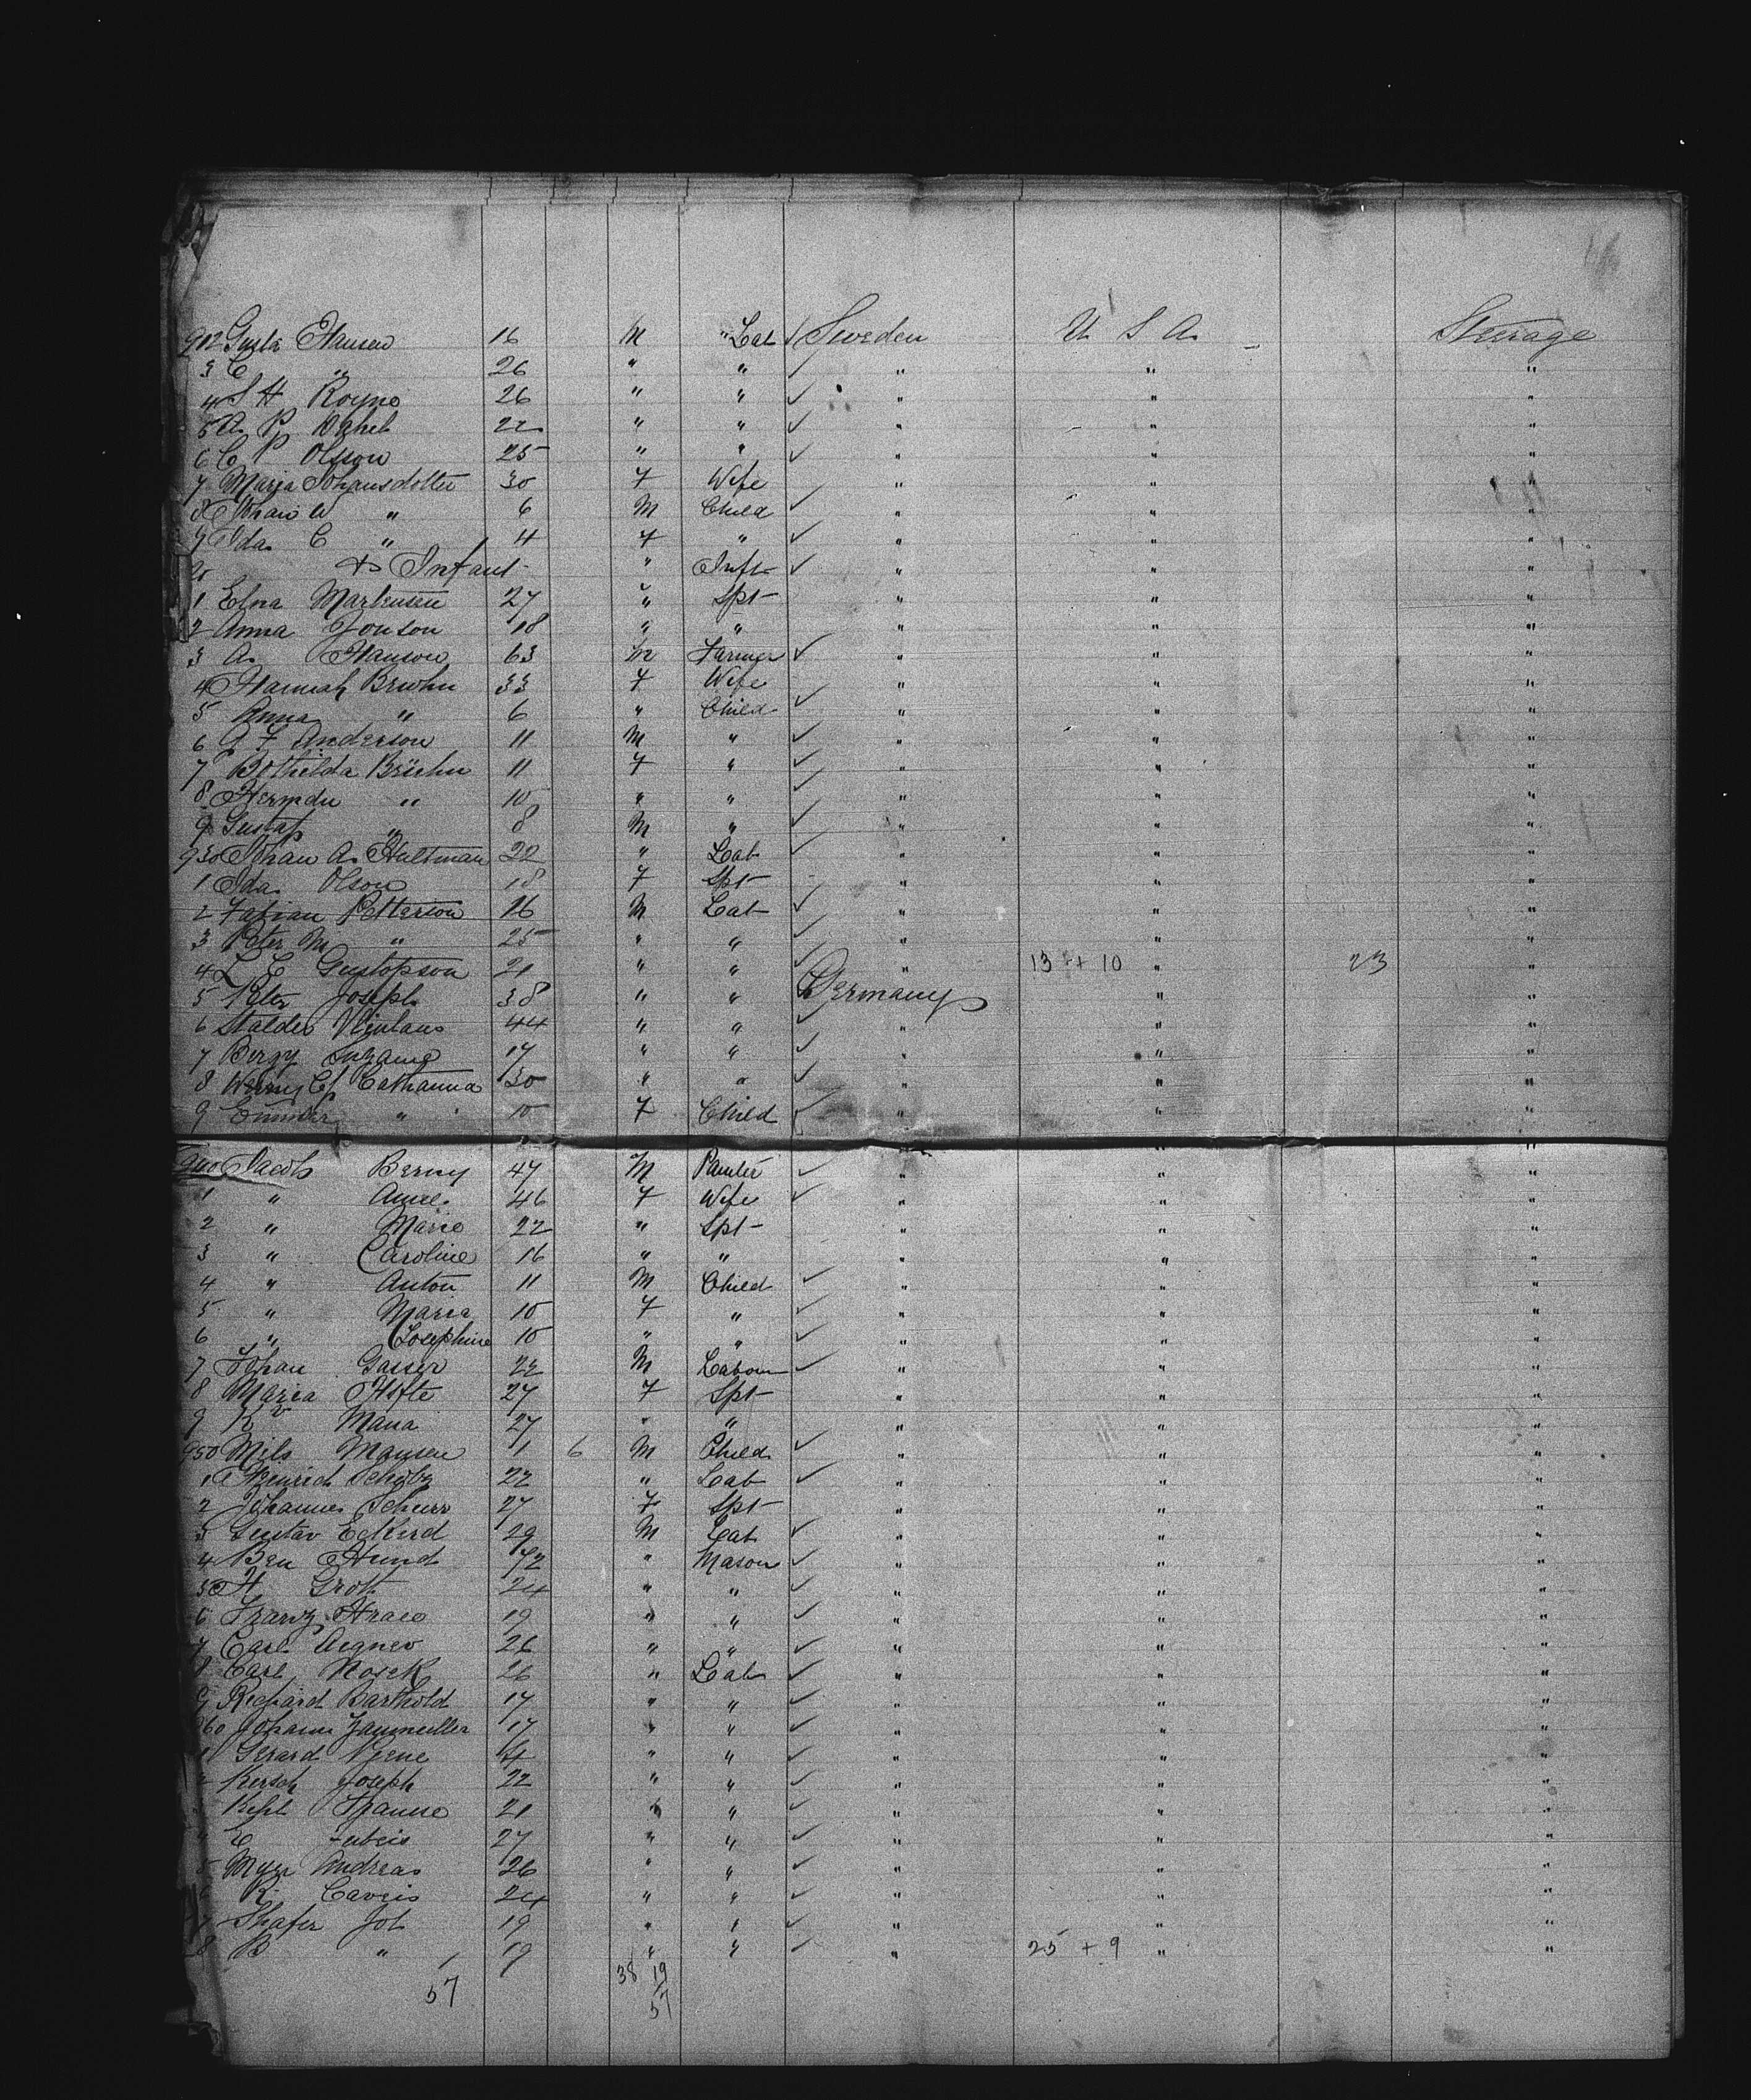 912 Gusta Hansen 16 M " Lab Sweden U S A. Steerage
3 C " 26 " " " " "
4 S H Royno 26 " " " " "
5 A. P. 22 " " " " "
6 C P Olsson 25 " " " " "
7 Marja Johansdotter 30 F Wife " " "
8 Johan W " 6 M Child " " "
9 Ida C " 4 F " " " "
20 & Infant " Inft " " "
1 Elna Martensen 27 " Spt " " "
2 Anna Jonson 18 " " " " "
3 A. Hanson 63 M Farmer " " "
4 Hannah Bruhn 33 F Wife " " "
5 Anna " 6 " Child " " "
6 A F Anderson 11 M " " " "
7 Bothilda Brühn 11 F " " " "
8 " 10 " " " " "
9 Gustaf " 8 M " " " "
930 Johan A. Hultman 22 " Lab " " "
1 Ida Olson 18 F Spt " " "
2 Fabian Petterson 16 M Lab " " "
3 Peter M " 25 " " " " "
4 L E Gustafson 21 " " " 13 + 10 " 23 "
5 Peter Joseph 38 " " Germany " "
6 Stalder 44 " " " " "
7 Bergy Suzanne 17 " " " " "
8 Catharina 30 " " " " "
9 " 10 F Child " " "
940 Jacob Berny 47 M " " "
1 " 46 F Wife " " "
2 " Marie 22 " Spt " " "
3 " Caroline 16 " " " " "
4 " Anton 11 M Child " " "
5 " Maria 10 F " " " "
6 " Josephine 10 " " " " "
7 Johan Gasser 22 M Labour " " "
8 Maria Hofte 27 F Spt " " "
9 K Maria 27 " " " " "
950 Nils Mansen 1 6 M Child " " "
1 Heinrich 22 " Lab " " "
2 Johannes Schurr 27 F Spt " " "
3 Gustav Eckerd 29 M Lab " " "
4 Ben Hund 42 " Mason " " "
5 H Groth 24 " " " " "
6 Franz 19 " " " " "
7 Carl Aegner 26 " " " " "
8 Carl Noseck 26 " Lab " " "
9 Richard Barthold 17 " " " " "
960 Johann Zaumuller 17 " " " " "
1 Gerard " " " " "
2 Kersch Joseph 22 " " " " "
21 " " " " "
27 " " " " "
5 Myer Andreas 26 " " " " "
R. Caveis 24 " " " " "
7 Shafer Joh 19 " " " " "
8 B " 19 " " " 25 + 9 " "
57 38 19
57